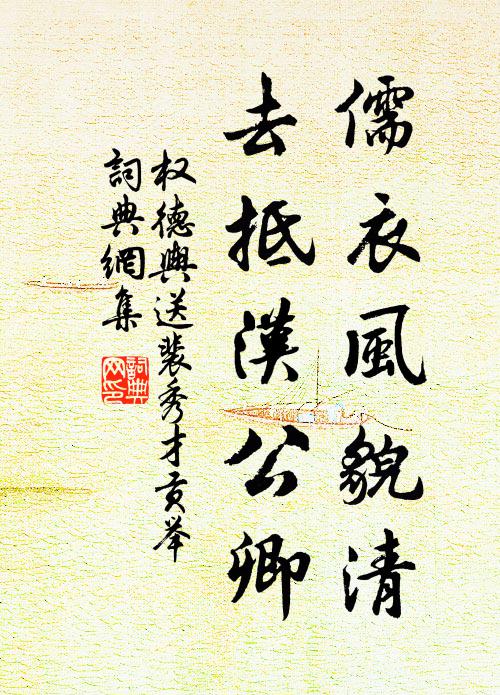 儒衣風貌清
去抵漢公卿
权德輿送裴秀才贡举
詞典網集
詞典網印